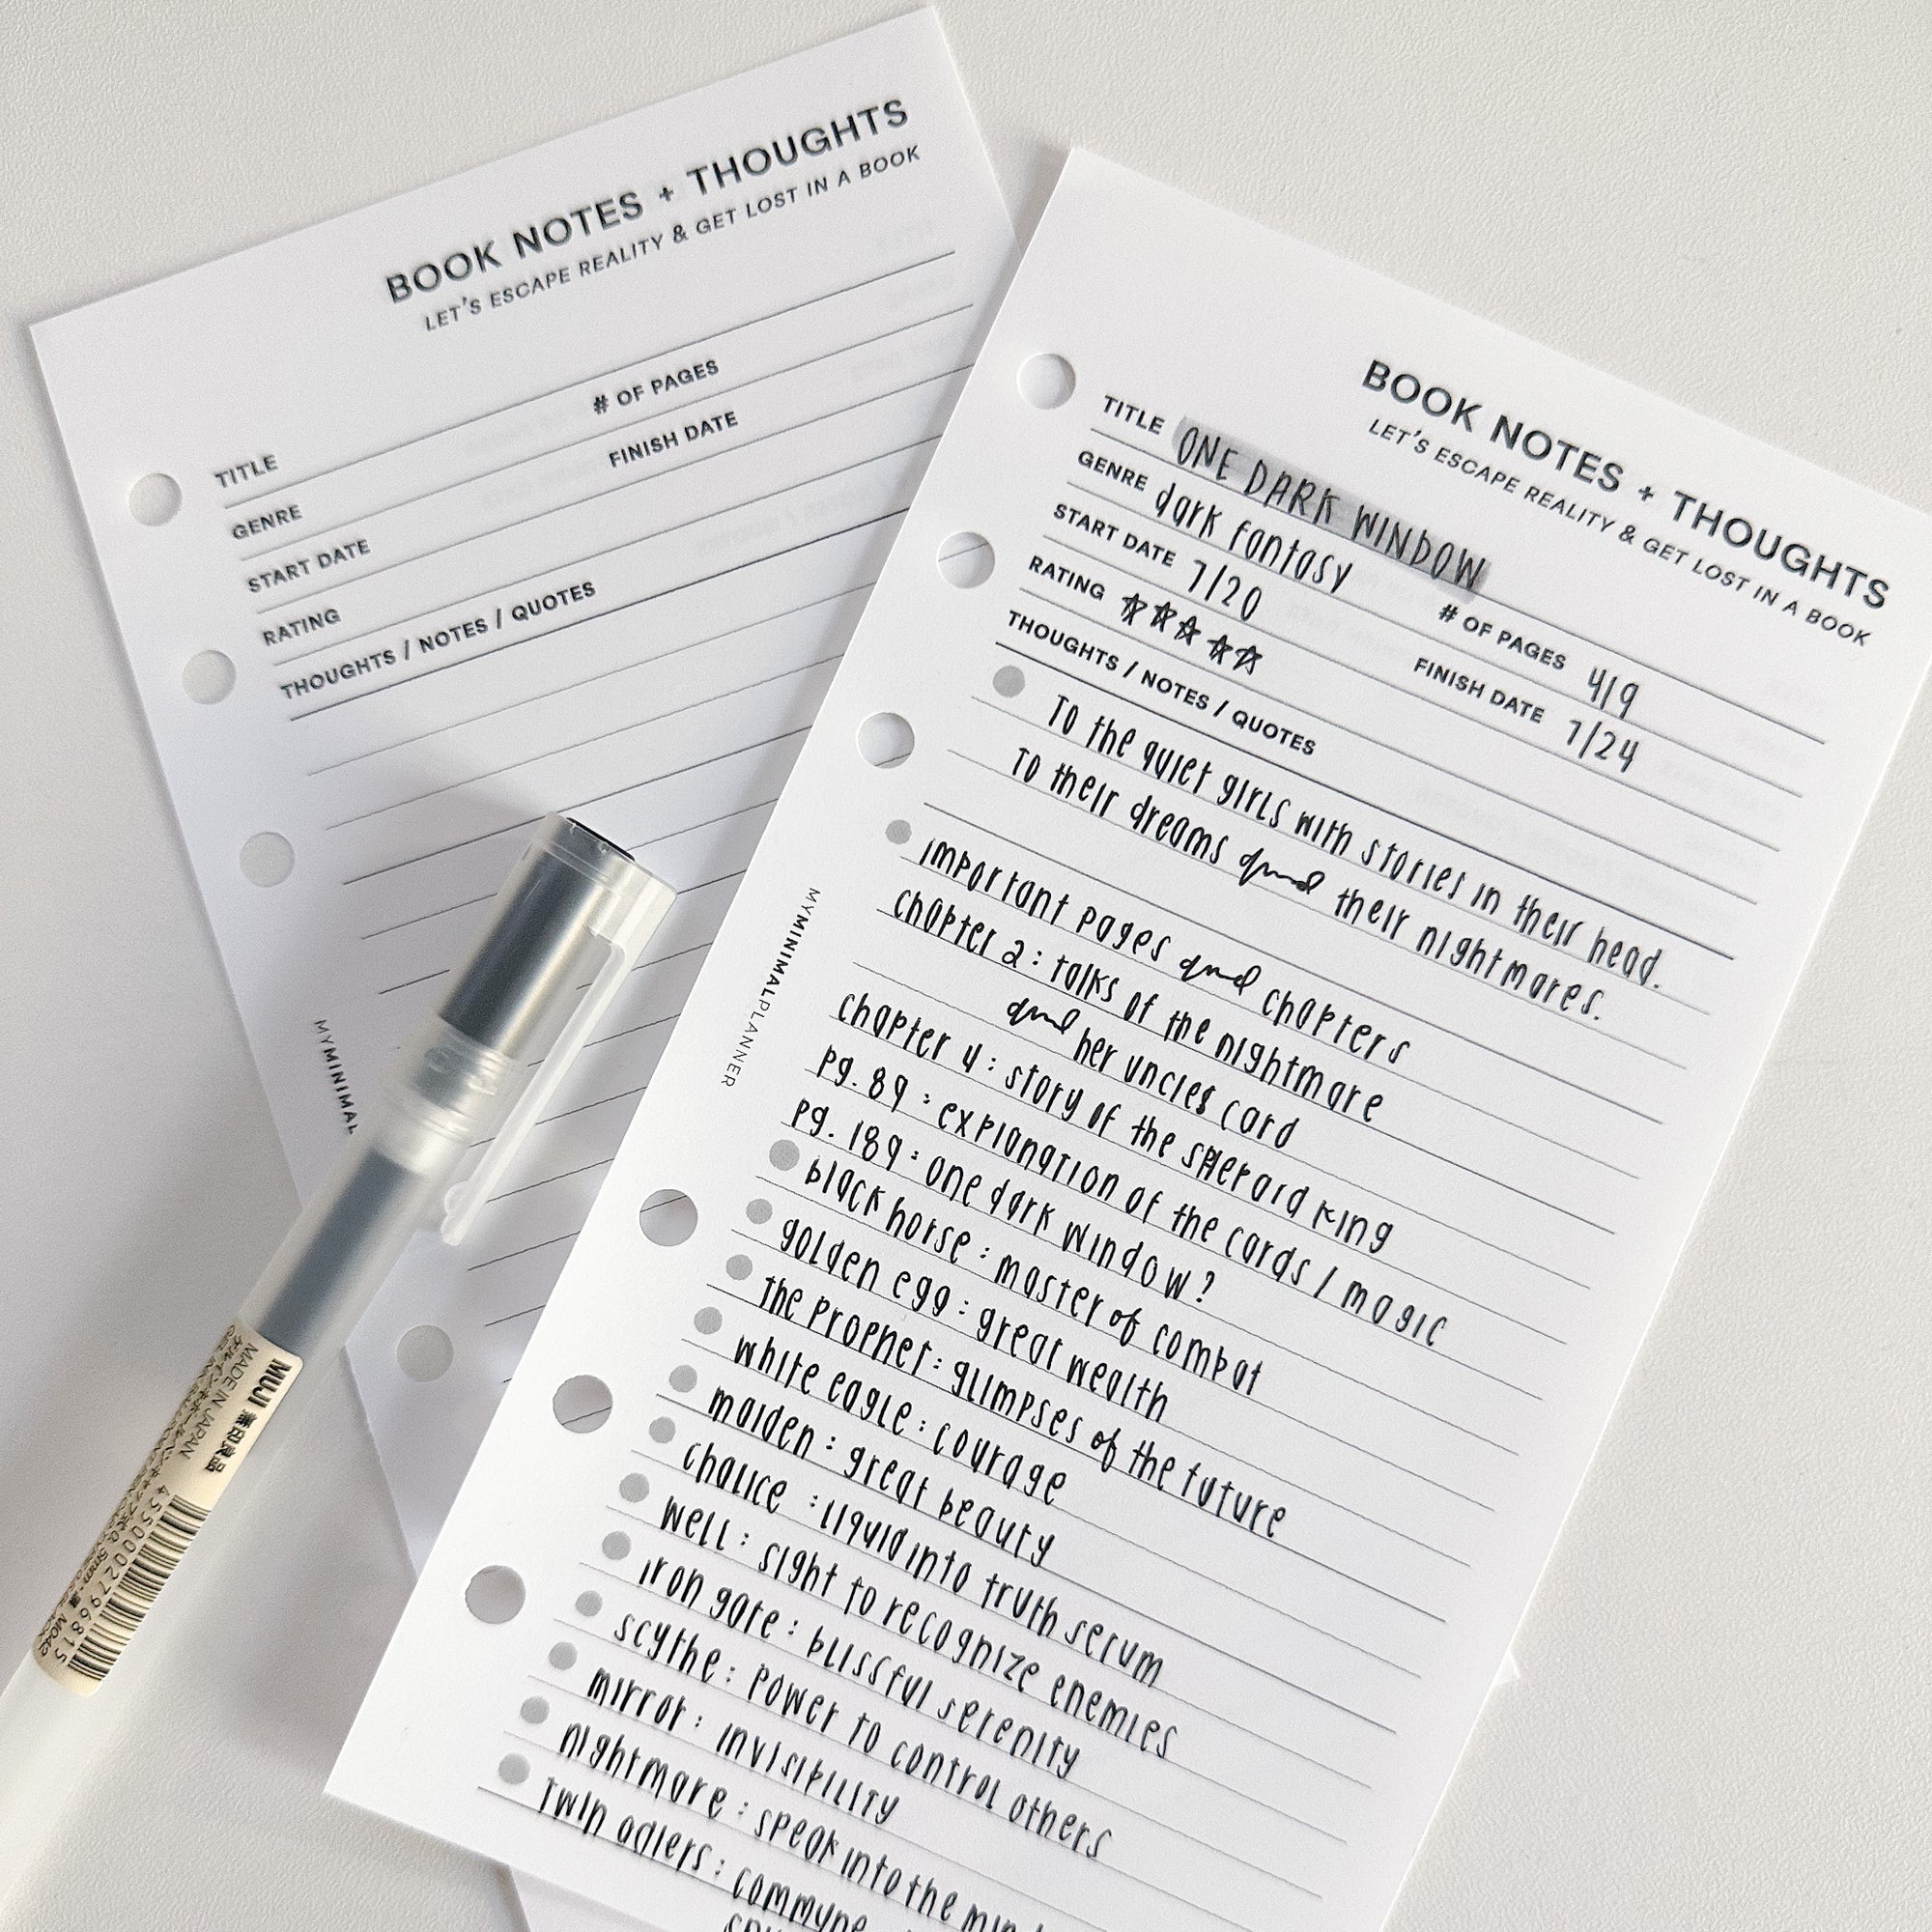 BOOK NOTES + THOUGHTS
LET'S ESCAPE REALITY & GET LOST IN A BOOK
TITLE
# OF PAGES
GENRE
FINISH DATE
START DATE
RATING
THOUGHTS / NOTES / QUOTES
MYMINIMAL
BOOK NOTES + THOUGHTS
LET'S ESCAPE REALITY & GET LOST IN A BOOK
TITLE ONE DARK WINDOW
GENRE dark fantasy # OF PAGES 419
START DATE 7/20 FINISH DATE 7/24
RATING ☆☆☆☆☆
THOUGHTS / NOTES / QUOTES
To the quiet girls with stories in their head.
To their dreams and their nightmares.
important pages and chapters
chapter 2: talks of the nightmare
and her uncles card
chapter 4: story of the sheperd king
pg. 89: explanation of the cards / magic
pg. 189: one dark window?
black horse: master of combat
golden egg: great wealth
the prophet: glimpses of the future
white eagle: courage
maiden: great beauty
chalice: liquid into truth serum
well: sight to recognize enemies
iron gate: blissful serenity
scythe: power to control others
mirror: invisibility
nightmare: speak into the
twin adlers: commune
MYMINIMALPLANNER
MUJI 無印良品
MADE IN JAPAN
4550002796815